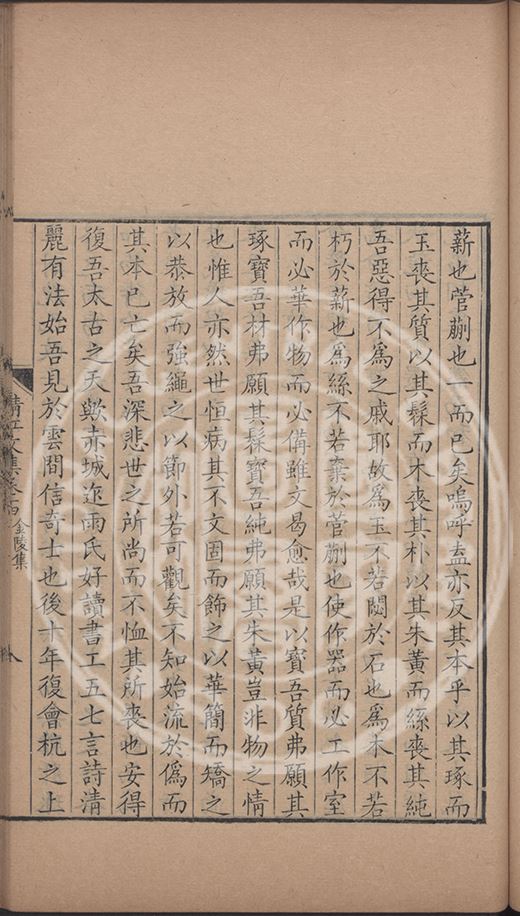 薪也菅蒯也一而已矣嗚呼盍亦反其本乎以其琢而
玉喪其質以其髹而木喪其朴以其朱黃而絲喪其純
吾惡得不為之戚耶故為玉不若閟於石也為木不若
朽於薪也為絲不若棄於菅蒯也使作器而必工作室
而必華作物而必備雖文曷愈哉是以寶吾質弗願其
琢寶吾材弗願其髹寶吾純弗願其朱黃豈非物之情
也惟人亦然世恒病其不文固而飾之以華簡而矯之
以恭放而強繩之以節外若可觀矣不知始流於偽而
其本已亡矣吾深悲世之所尚而不恤其所喪也安得
復吾太古之天歟赤城迮雨氏好讀書工五七言詩清
麗有法始吾見於雲間信奇士也後十年復會杭之上
清江文集卷之四 金陵集